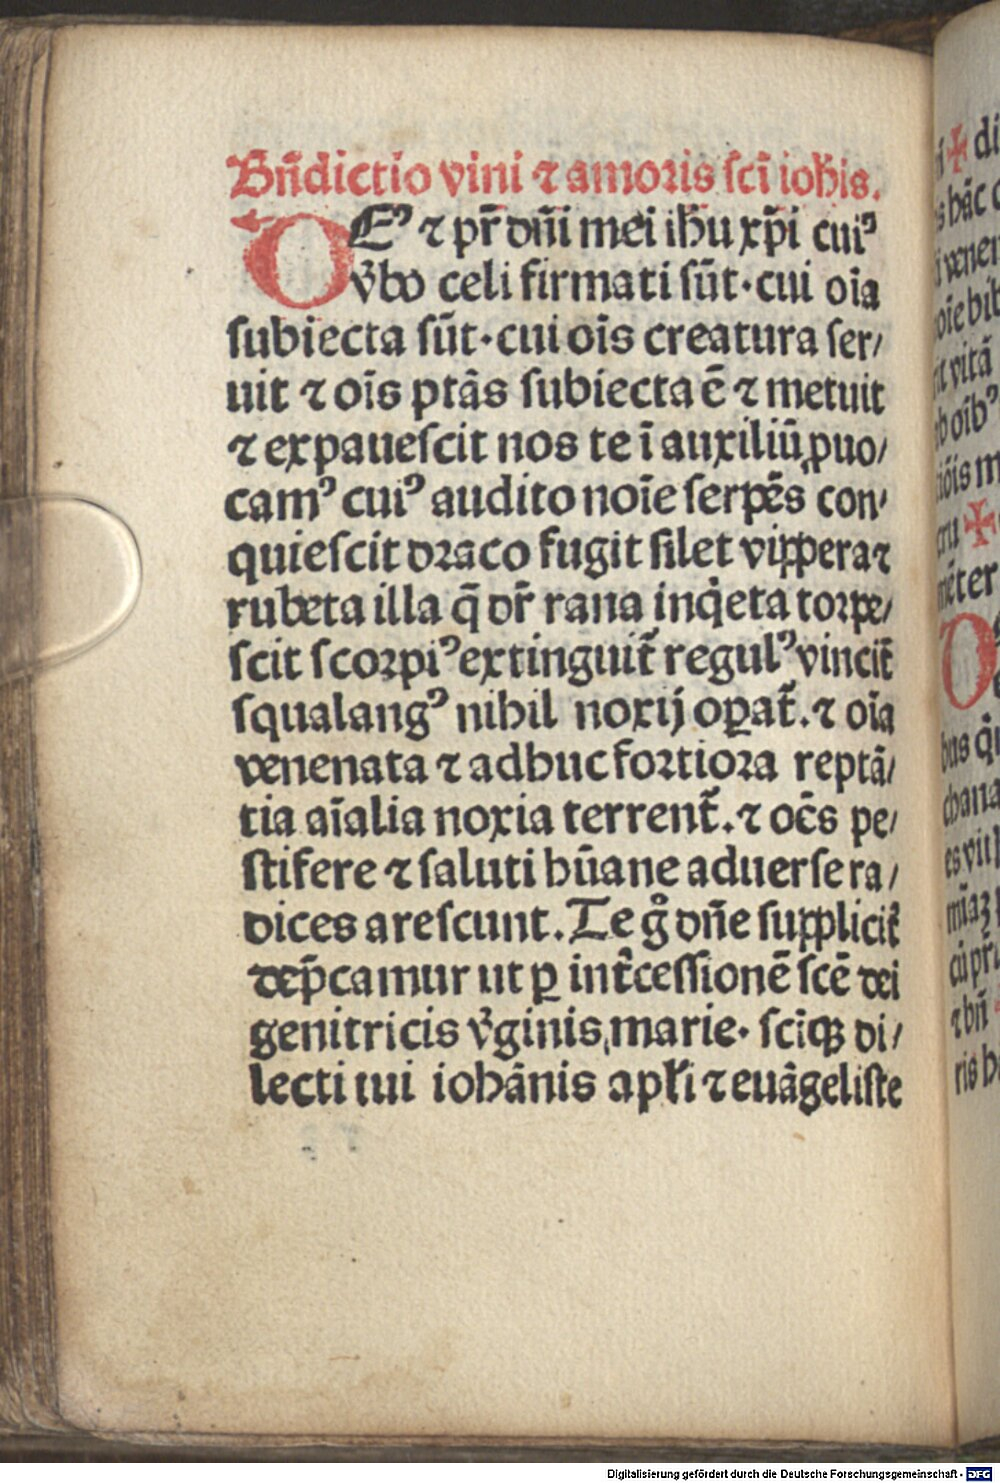 Bn̄dictio vini ⁊ amoris sci̅ ioh̅is.
DEꝰ ⁊ pr̅ dn̅i mei ih̅u xp̅i cuiꝰ
v̾bo celi firmati sūt·cui oi̅a
subiecta sūt·cui oi̅s creatura ser/
uit ⁊ oi̅s ptās subiecta ē ⁊ metuit
⁊ expauescit nos te ī auxiliū ꝓuo/
camꝰ cuiꝰ audito noi̅e serpēs con/
quiescit draco fugit silet vippera ⁊
rubeta illa q̄ dr̅ rana inq̇eta torpe/
scit scorpiꝰ extinguit̃ regulꝰ vincit̃
squalangꝰ nihil noxij oꝑat̃.⁊ oi̅a
venenata ⁊ adhuc fortiora reptā/
tia ai̅alia noxia terrent̃.⁊ oc̅s pe/
stifere ⁊ saluti hūane aduerse ra/
dices arescunt. Te gͦ dn̅e supplicit̃
dep̄camur ut ꝑ int̾cessionē scē dei
genitricis v̾ginis marie· sci̅qꝫ di/
lecti tui iohānis apl̅i ⁊ euāgeliste
i ✠ di
s hāc c
i venen
oi̅e bib
it vitā
b oi̅bꝰ
iōis m
cru ✠
mēter
D
bus q̇
chana
es vit
mi̅aꝫ
cū pr̅i
⁊ bn̅
ris
Digitalisierung gefördert durch die Deutsche Forschungsgemeinschaft - DFG